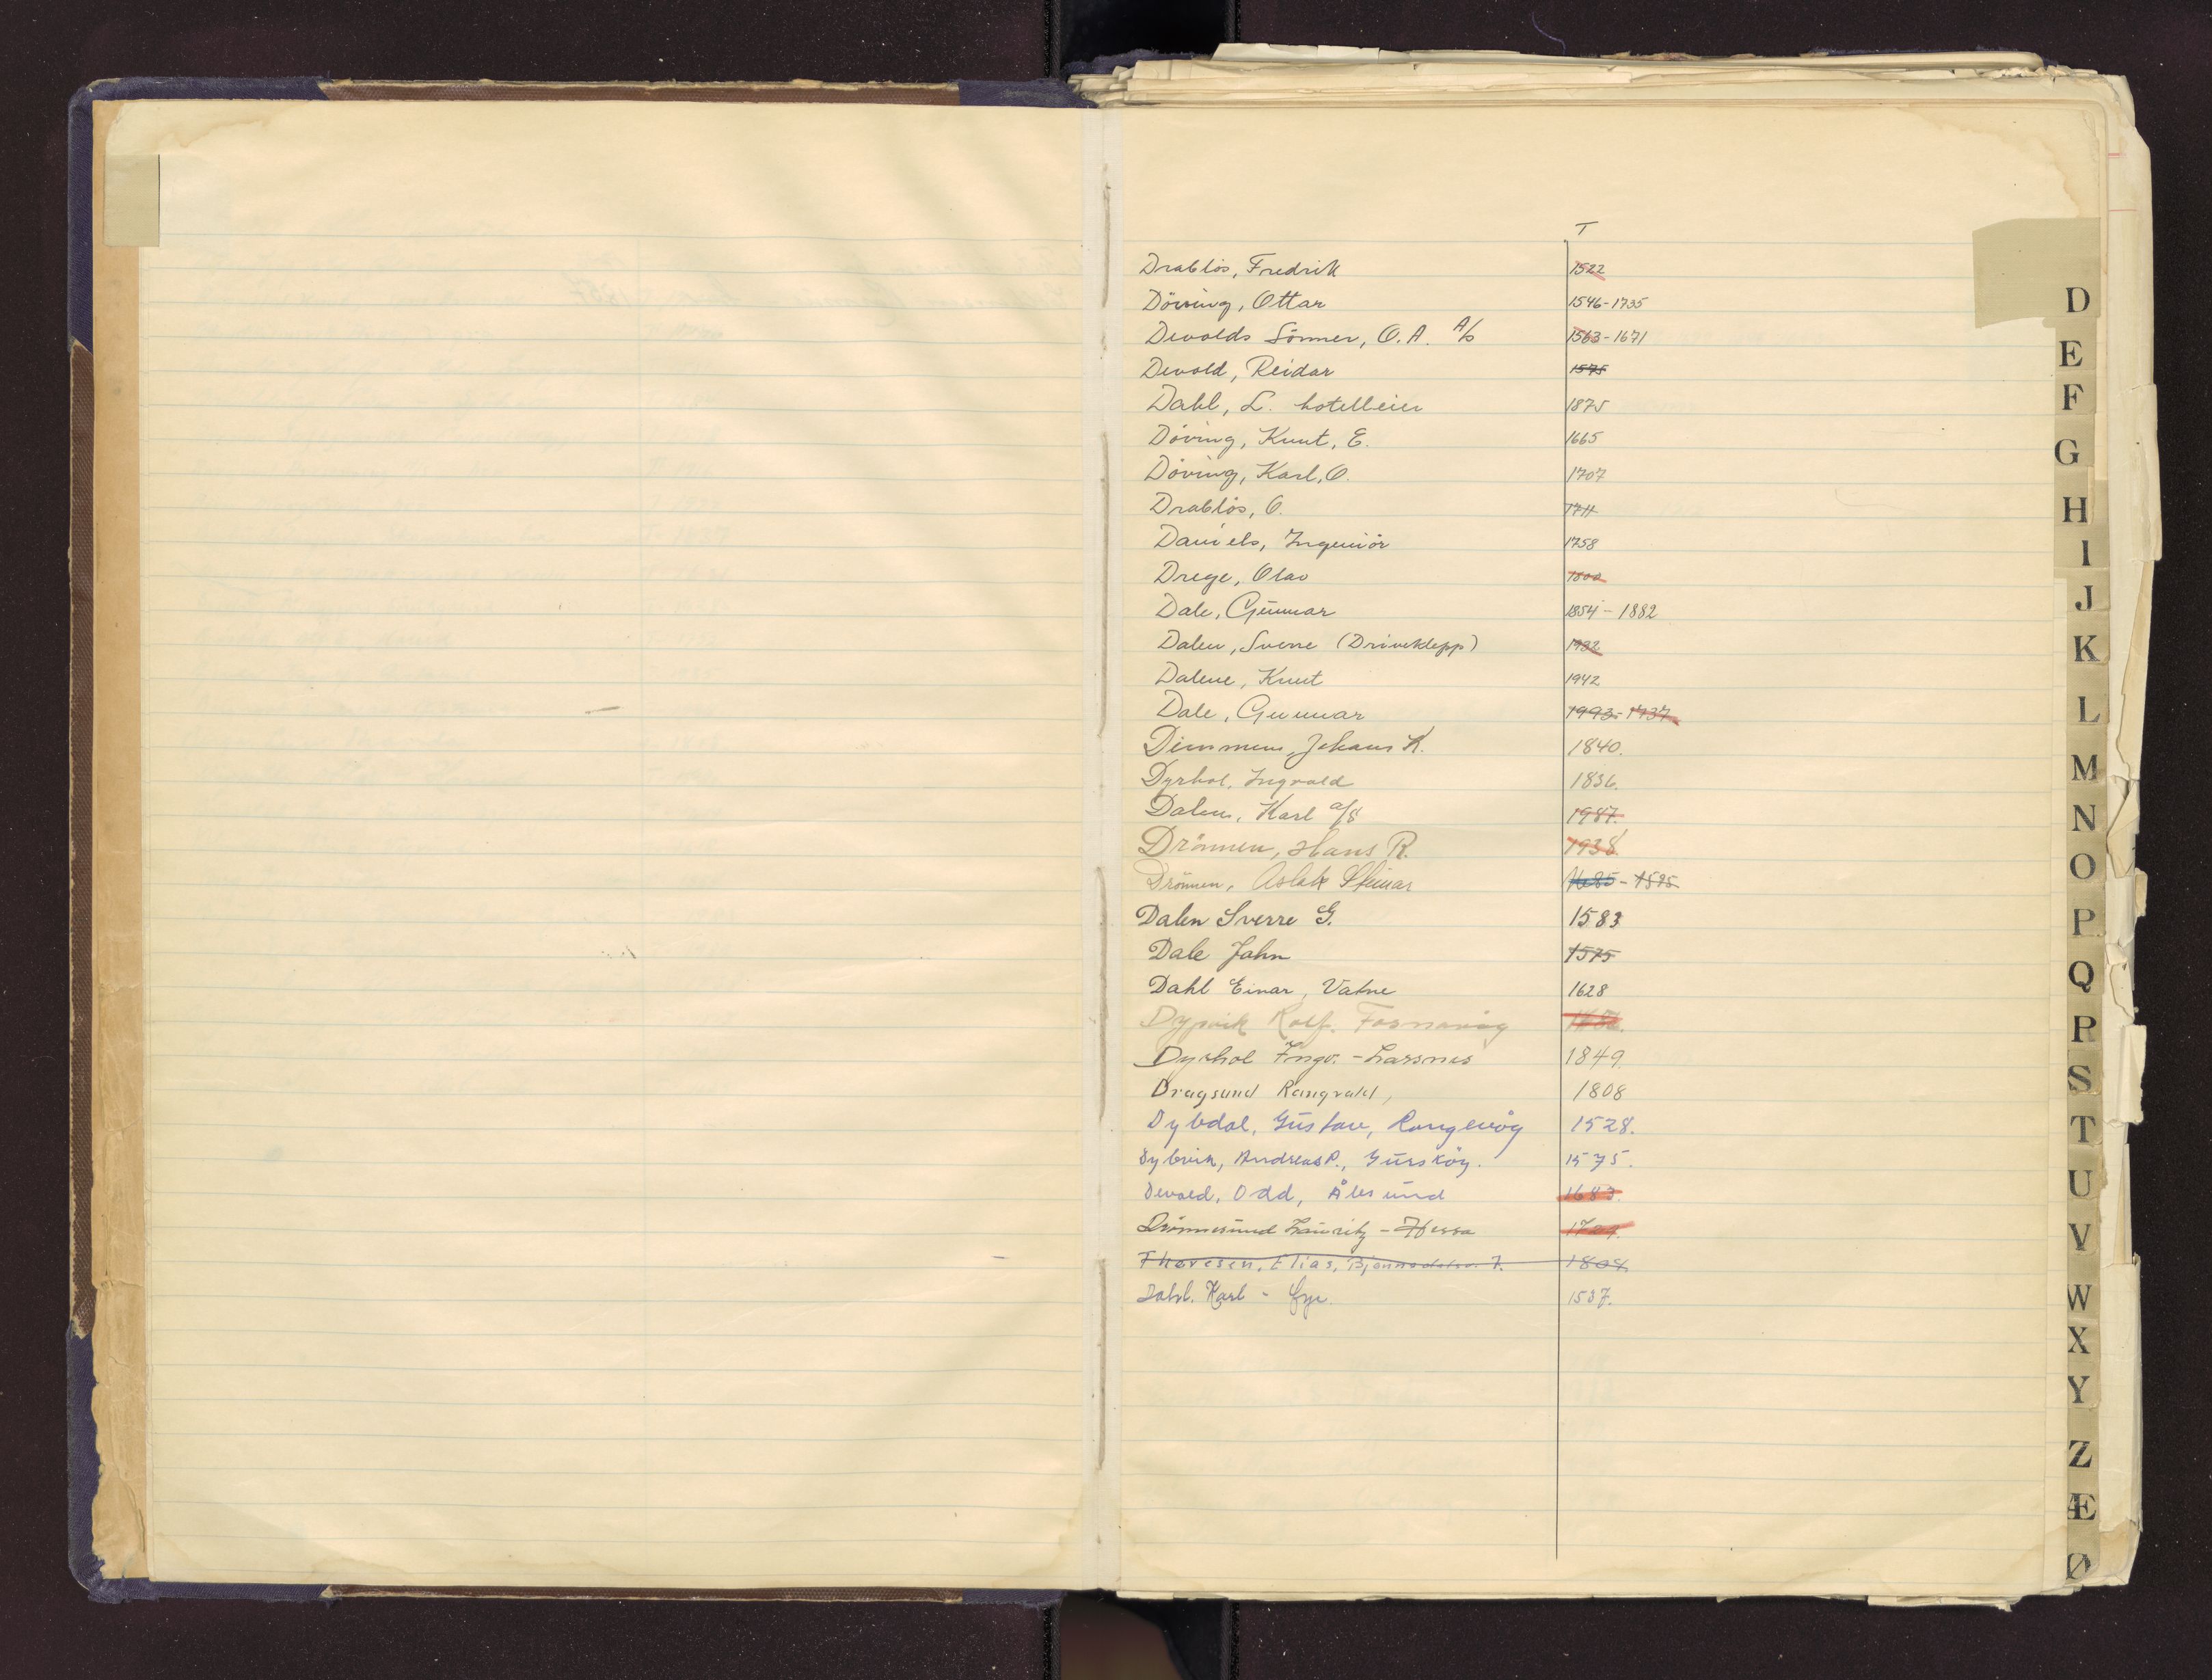 T
Drablös, Fredrik 1522
Döving, Ottar 1546-1735
Devolds Sönner, O.A. A/s 1563-1671
Devold, Reidar 1575
Dahl, L. hotelleier 1875
Döving, Knut, E. 1665
Döving, Karl, O. 1707
Drablös, O. 1711
Daniels, Ingeniör 1758
Drege, Olav 1800
Dale, Gunnar 1854 - 1882
Dalen, Sverre (Driveklepp) 1932
Dalene, Knut 1942
Dale, Gunnar 1993 - 1737
Dimmen, Johans K. 1840.
Dyrhol, Ingvald 1836.
Dalen, Karl a/s 1987.
Drönnen, Hans R. 1938
Drönnen, Aslak Steinar 1685 - 1595
Dalen Sverre G. 1583
Dale John 1575
Dahl Einar, Vatne 1628
Dypvik Rolf. Fosnavåg
Dyrhol Ingv. - Larsnes 1849.
Dragsund Rangvald, 1808
Dybdal, Gustav, Longevåg 1528.
Dybvik, Andreas P., Gursköy. 1575.
Devold, Odd, Ålesund 1683.
Drönnesund Lauritz - Hessa 1709.
Thoresen, Elias, 1808.
Dahl. Karl - 1537.
D
E
F
G
H
I
J
K
L
M
N
O
P
Q
R
S
T
U
V
W
X
Y
Z
Æ
Ø